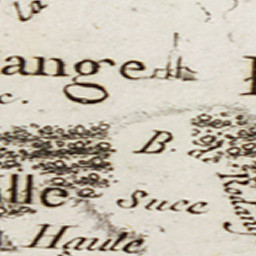 la
ange
c.
B. de
lle Succ
Haute
Rodang